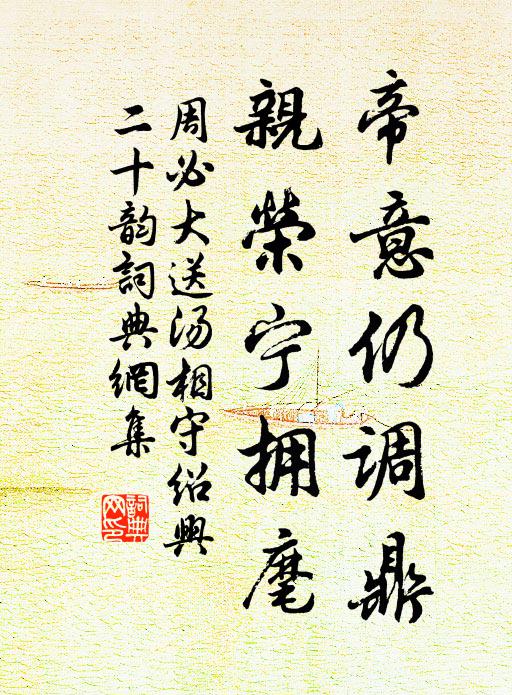 帝意仍调鼎
親榮宁拥麾
周必大送汤相守绍興
二十韵詞典網集
詞典
网印